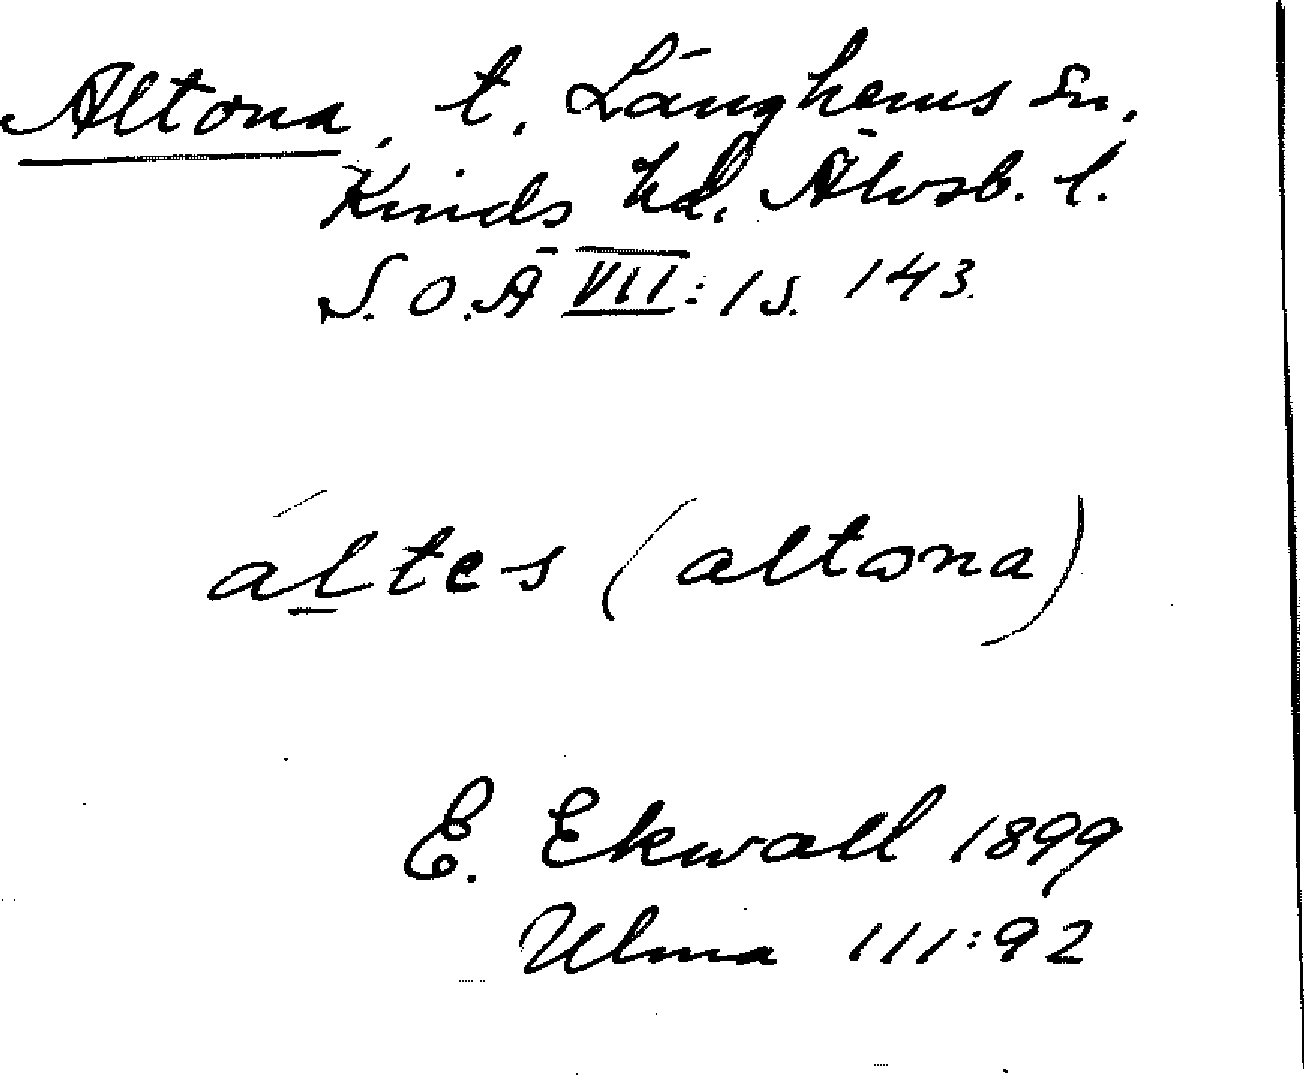 Altona, t. Länghems sn,
Kinds hd. Älvsb. l.
S.O.Ä VII:1 s. 143.
áltes (altona)
E. Ekwall 1899
Ulma 111:92